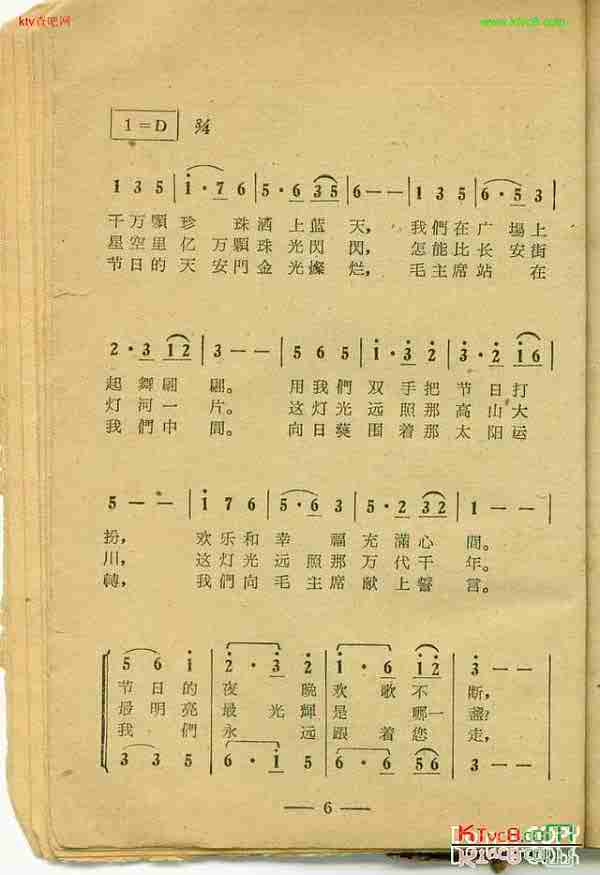 ktv查吧网
www.ktvc8.com
1=D 3/4
1 3 5 | i · 7 6 | 5 · 6 3 5 | 6 — — | 1 3 5 | 6 · 5 3 |
千万顆珍 珠洒上蓝天， 我們在广場上
星空里亿万顆珠光閃閃， 怎能比长安街
节日的天安門金光燦烂， 毛主席站在
2 · 3 1 2 | 3 — — | 5 6 5 | i · 3 2 | 3 · 2 i 6 |
起舞翩翩。 用我們双手把节日打
灯河一片。 这灯光远照那高山大
我們中間。 向日葵围着那太阳运
5 — — | i 7 6 | 5 · 6 3 | 5 · 2 3 2 | 1 — — |
扮， 欢乐和幸福充滿心間。
川， 这灯光远照那万代千年。
轉， 我們向毛主席献上誓言。
5 6 i | 2 · 3 | i · 6 i 2 | 3 — — |
节日的夜晚欢歌不断，
最明亮最光輝是哪一盏？
我們永远跟着您走，
3 3 5 | 6 · i | 6 · 6 5 6 | 5 — — |
— 6 —
KTvc8.com
COPY